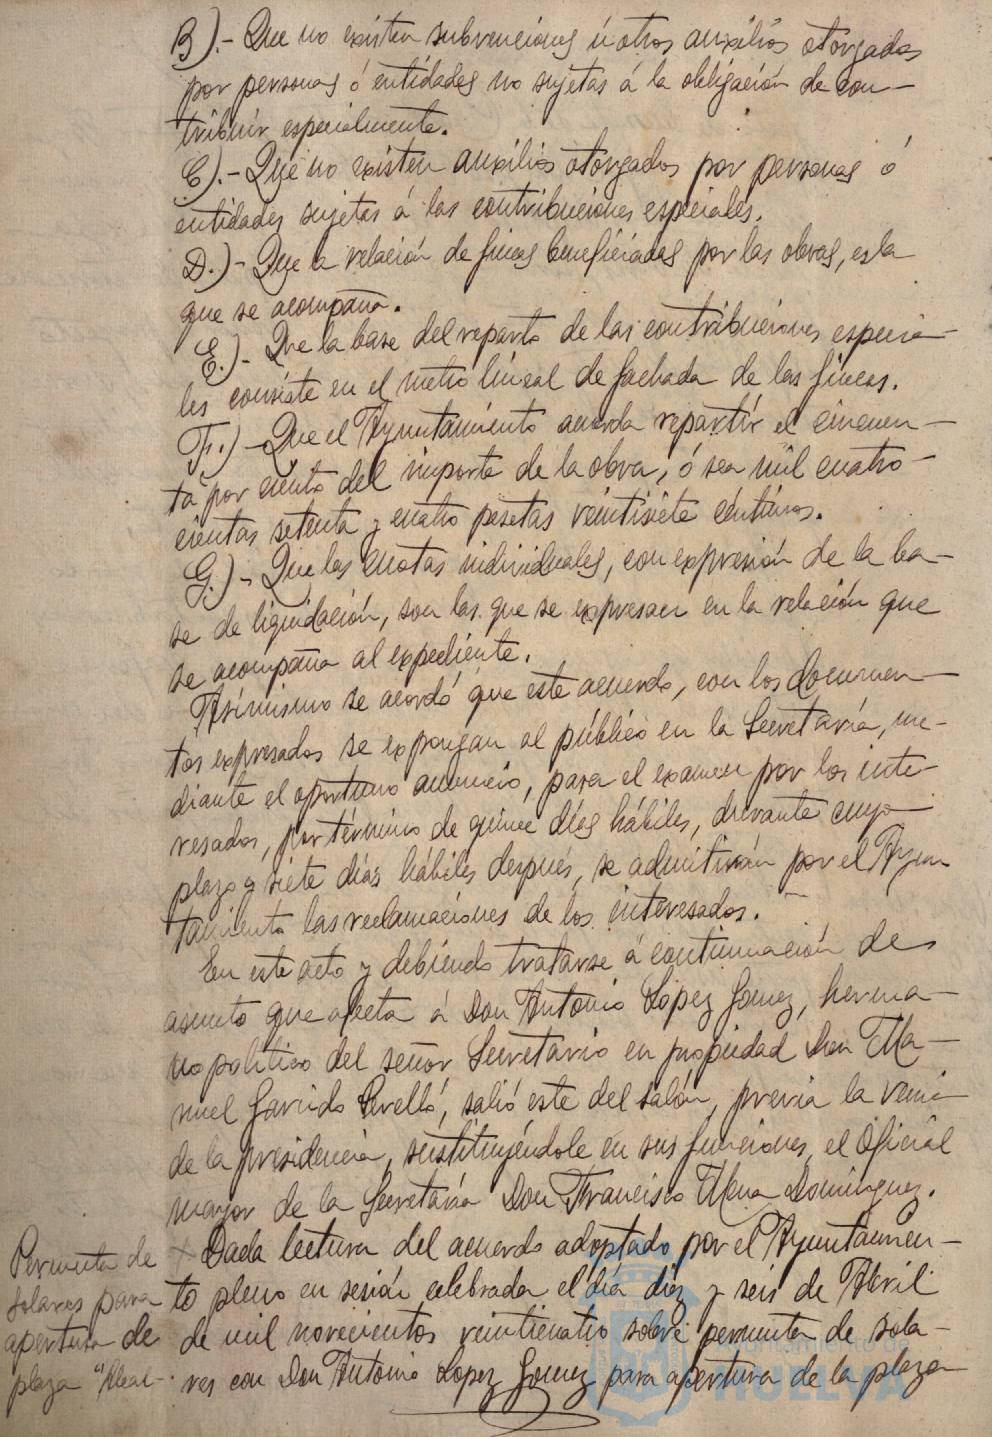 B).- Que no existen subvenciones ú otros auxilios otorgados
por personas ó entidades no sujetas á la obligación de con-
tribuir especialmente.
C).- Que no existen auxilios otorgados por personas ó
entidades sujetas á las contribuciones especiales.
D.)- Que la relación de fincas beneficiadas por las obras, es la
que se acompaña.
E.)- Que la base del reparto de las contribuciones especia-
les consiste en el metro lineal de fachada de las fincas.
F.)- Que el Ayuntamiento acuerda repartir el cincuen-
ta por ciento del importe de la obra, ó sea mil cuatro-
cientas setenta y cuatro pesetas veintisiete céntimos.
G.)- Que las cuotas individuales, con expresión de la ba-
se de liquidación, son las que se expresan en la relación que
se acompaña al expediente.
Asimismo se acordó que este acuerdo, con los documen-
tos expresados se expongan al público en la Secretaría, me-
diante el oportuno anuncio, para el examen por los inte-
resados, por término de quince días hábiles, durante cuyo
plazo y siete días hábiles después, se admitirán por el Ayun
tamiento las reclamaciones de los interesados.
En este acto y debiendo tratarse á continuación de
asunto que afecta á Don Antonio López Gomez, herma-
no politico del señor Secretario en propiedad Don Ma-
nuel Garrido Perelló, salió este del salón, previa la venia
de la presidencia, sustituyéndole en sus funciones, el Oficial
mayor de la Secretaría Don Francisco Mena Domínguez.
Permuta de
solares para
apertura de
plaza
Dada lectura del acuerdo adoptado por el Ayuntamien-
to pleno en sesión celebrada el día diez y seis de Abril
de mil novecientos veinticuatro sobre permuta de sola-
res con Don Antonio López Gomez para apertura de la plaza
Ayuntamiento de
HUELVA